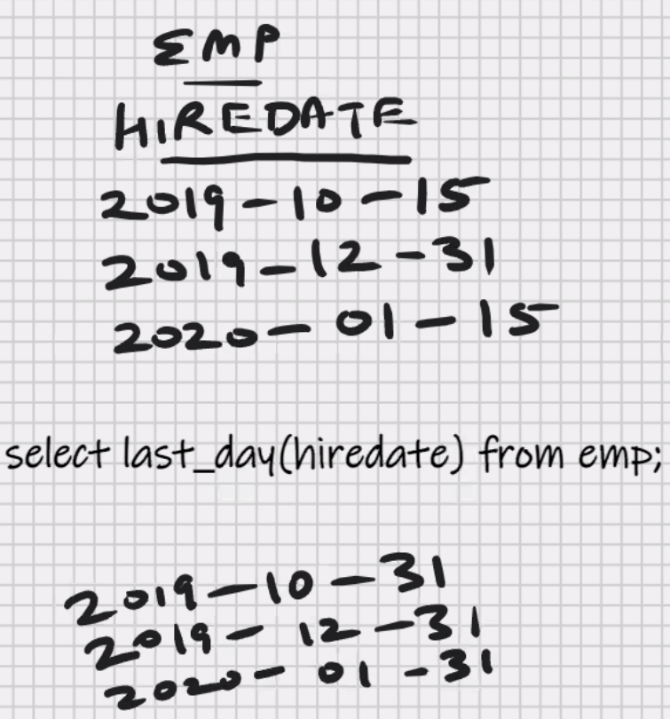 EMP
HIREDATE
2019-10-15
2019-12-31
2020-01-15
select last_day(hiredate) from emp;
2019-10-31
2019-12-31
2020-01-31